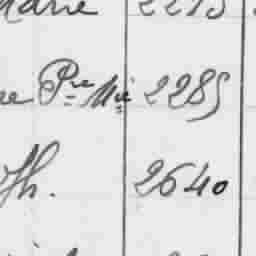 Marie 2215
Pre Mie 2285
Jh. 2640